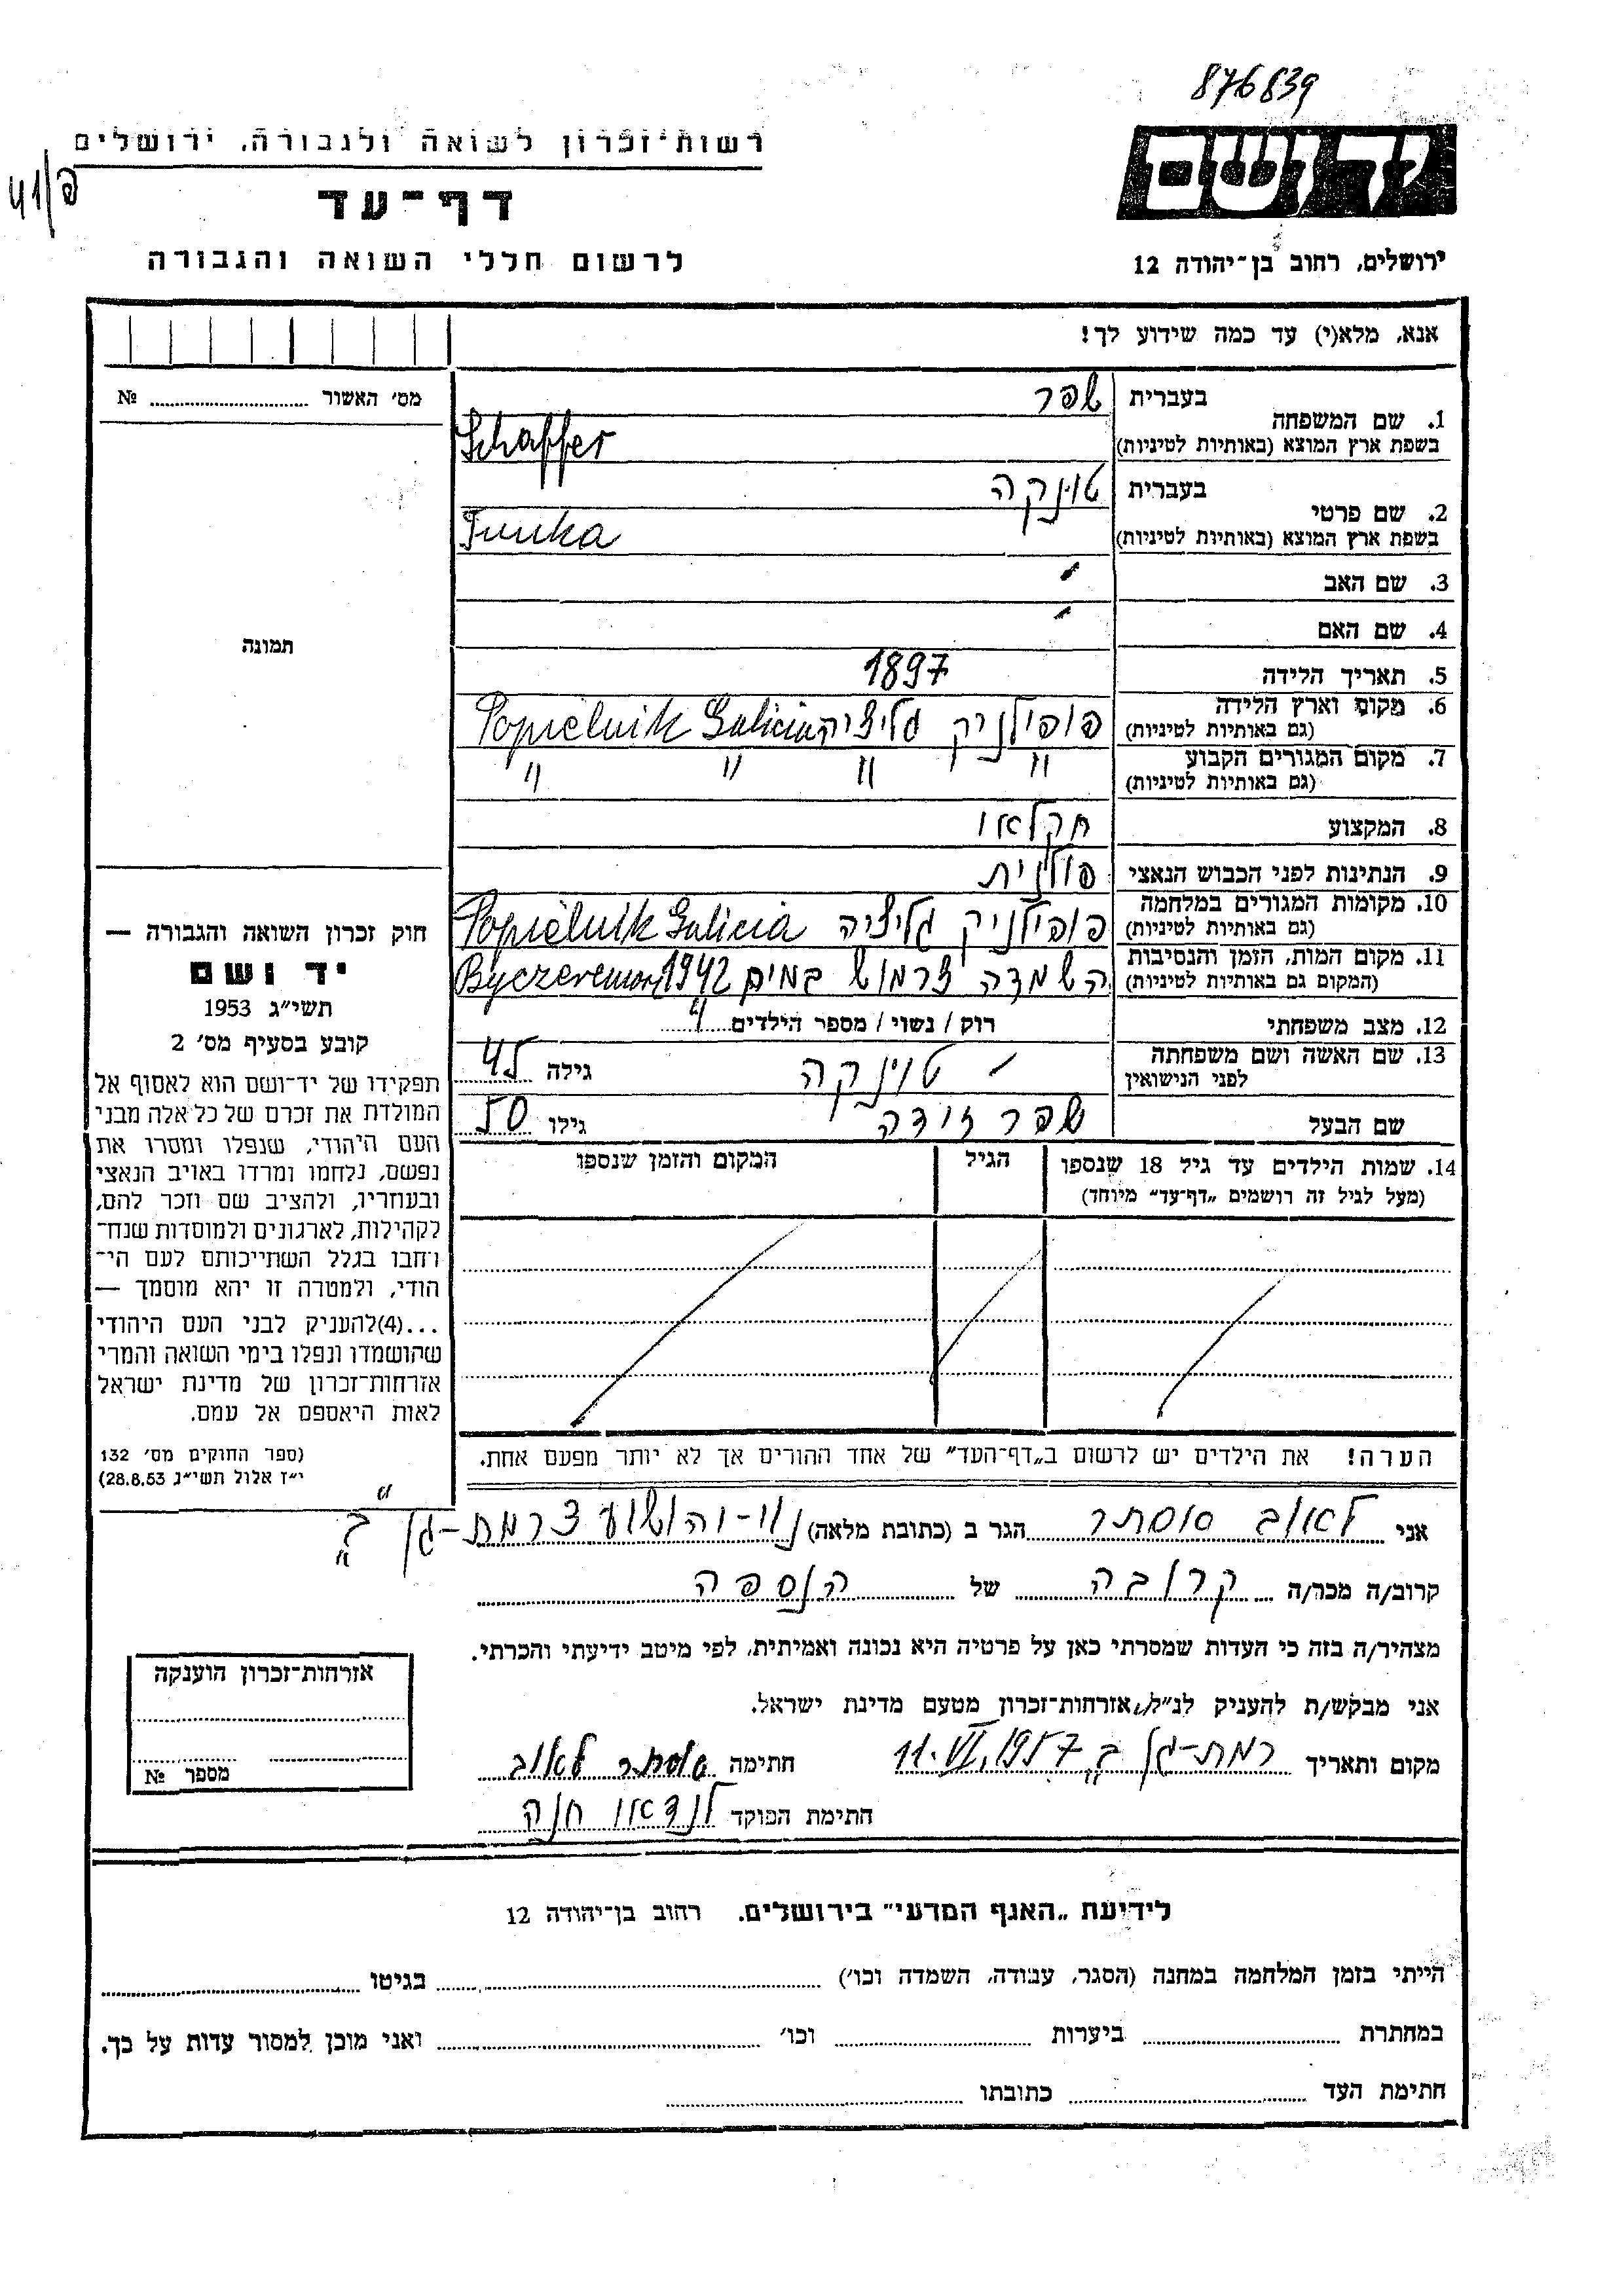 876839
רשות־זכרון לשואה ולגבורה, ירושלים
41/פ
יד ושם
דף־עד
לרשום חללי השואה והגבורה
ירושלים, רחוב בן־יהודה 12
אנא, מלא(י) עד כמה שידוע לך!
מס׳ האשור ........ №
1. שם המשפחה בעברית שפר
בשפת ארץ המוצא (באותיות לטיניות) Schaffer
2. שם פרטי בעברית טוינקה
בשפת ארץ המוצא (באותיות לטיניות)
3. שם האב
4. שם האם
תמונה
5. תאריך הלידה 1897
6. מקום וארץ הלידה פופילניק גליציה Popielnik Galicia
(גם באותיות לטיניות)
7. מקום המגורים הקבוע " " " "
(גם באותיות לטיניות)
8. המקצוע חקלאו
9. הנתינות לפני הכבוש הנאצי פולנית
10. מקומות המגורים במלחמה פופילניק גליציה Popielnik Galicia
(גם באותיות לטיניות)
11. מקום המות, הזמן והנסיבות השמדה צרמוש במים 1942
(המקום גם באותיות לטיניות)
12. מצב משפחתי רוק / נשוי / מספר הילדים
13. שם האשה ושם משפחתה טוינקה גילה 45
לפני הנישואין
שם הבעל שפר יודה גילו 50
14. שמות הילדים עד גיל 18 שנספו הגיל המקום והזמן שנספו
(מעל לגיל זה רושמים „דף־עד״ מיוחד)
חוק זכרון השואה והגבורה —
יד ושם
תשי״ג 1953
קובע בסעיף מס׳ 2
תפקידו של יד־ושם הוא לאסוף אל
המולדת את זכרם של כל אלה מבני
העם היהודי, שנפלו ומסרו את
נפשם, נלחמו ומרדו באויב הנאצי
ובעוזריו, ולהציב שם וזכר להם,
לקהילות, לארגונים ולמוסדות שנח־
רחבו בגלל השתייכותם לעם הי־
הודי, ולמטרה זו יהא מוסמך —
...(4)להעניק לבני העם היהודי
שהושמדו ונפלו בימי השואה והמרי
אזרחות־זכרון של מדינת ישראל
לאות היאספם אל עמם.
(ספר החוקים מס׳ 132
י״ז אלול תשי״ג 28.8.53)
הערה! את הילדים יש לרשום ב„דף־העד״ של אחד ההורים אך לא יותר מפעם אחת.
אני לאוב אסתר הגר ב (כתובת מלאה) נוי-יהושוע רמת-גן ב
קרוב/ה מכר/ה קרובה של הנספה
מצהיר/ה בזה כי העדות שמסרתי כאן על פרטיה היא נכונה ואמיתית, לפי מיטב ידיעתי והכרתי.
אני מבקש/ת להעניק לנ״ל אזרחות־זכרון מטעם מדינת ישראל.
מקום ותאריך רמת-גן ב 11.VI.1957 חתימה אסתר לאוב
חתימת הפוקד לנדאו חנה
אזרחות־זכרון הוענקה
מספר №
לידיעת „האגף המדעי״ בירושלים. רחוב בן־יהודה 12
הייתי בזמן המלחמה במחנה (הסגר, עבודה, השמדה וכו׳) ........ בגיטו ........
במחתרת ........ ביערות ........ וכו׳ ........ ואני מוכן למסור עדות על כך.
חתימת העד ........ כתובתו ........